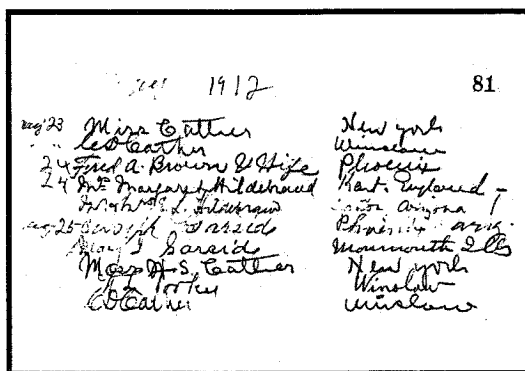 1912 81
Aug 23 Miss Cather New York
" " C D Cather Winslow
24 Fred A. Brown & Wife Phoenix
24 Mrs Margaret Hildebrand Kent. England
Hildebrand Arizona
Aug 25 Joseph Phoenix Ariz.
Monmouth Ills
Miss W. S. Cather New York
Tooker Winslow
C D Cather Winslow